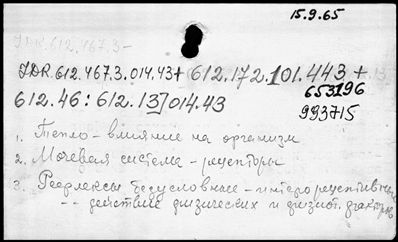 15.9.65
УДК 612.467.3-
УДК 612.467.3.014.43+ 612.172.101.443 +
612.46 : 612.13]014.43
653196
993715
1. Тепло - влияние на организм
2. Мочевая система - рецепторы
3. Рефлексы безусловные - интерорецептивные
-- действие физических и